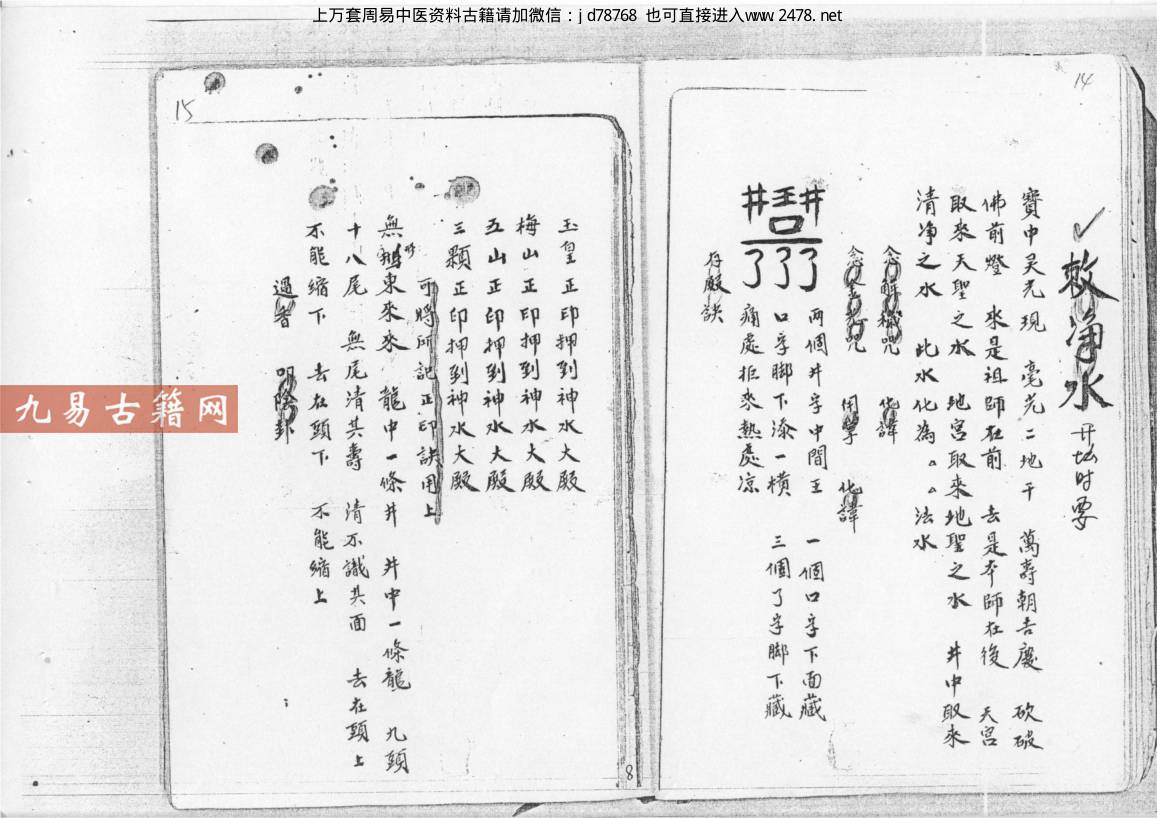 上万套周易中医资料古籍请加微信：jd78768 也可直接进入www.2478.net
14
敕净水 开坛时要
寶中吴光現 毫光二地干 萬壽朝吉慶 砍破
佛前燈 來是祖師在前 去是本師在後 天宮
取來天聖之水 地宮取來地聖之水 井中取來
清净之水 此水化為。。法水
化諱
咒 用字 化諱
井王井
口
了了了
两個井字中間王 一個口字下面藏
口字脚下添一横 三個了字脚下藏
痛處拒來熱處凉
存殿訣
15
玉皇正印押到神水大殿
梅山正印押到神水大殿
五山正印押到神水大殿
三顆正印押到神水大殿
可將所記正印訣用上
無 東來來 龍中一條井 井中一條龍 九頭
十八尾 無尾清其壽 清不識其面 去在頭上
不能缩下 去在頭下 不能缩上
過香 陰卦
8
九易古籍网